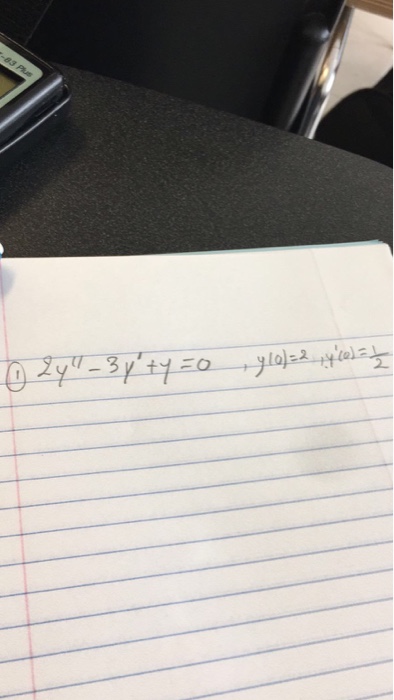 -83 Plus
① 2y'' - 3y' + y = 0 , y(0) = 2 , y'(0) = 1/2